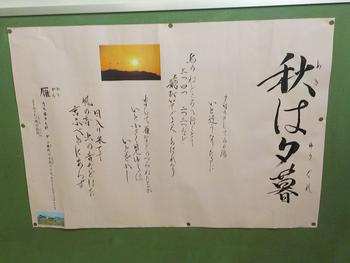 秋は夕暮
あき ゆうぐれ
夕日のさして山の端
いと近うなりたるに
烏のねどころへ行くとて
三つ四つ 二つ三つなど
飛びいそぐさへ あはれなり
まいて雁などのつらねたるが
いとちひさく見ゆるは
いとをかし
日入り果てて
風の音 虫の音などはた
言ふべきにあらず
雁
かり
がん